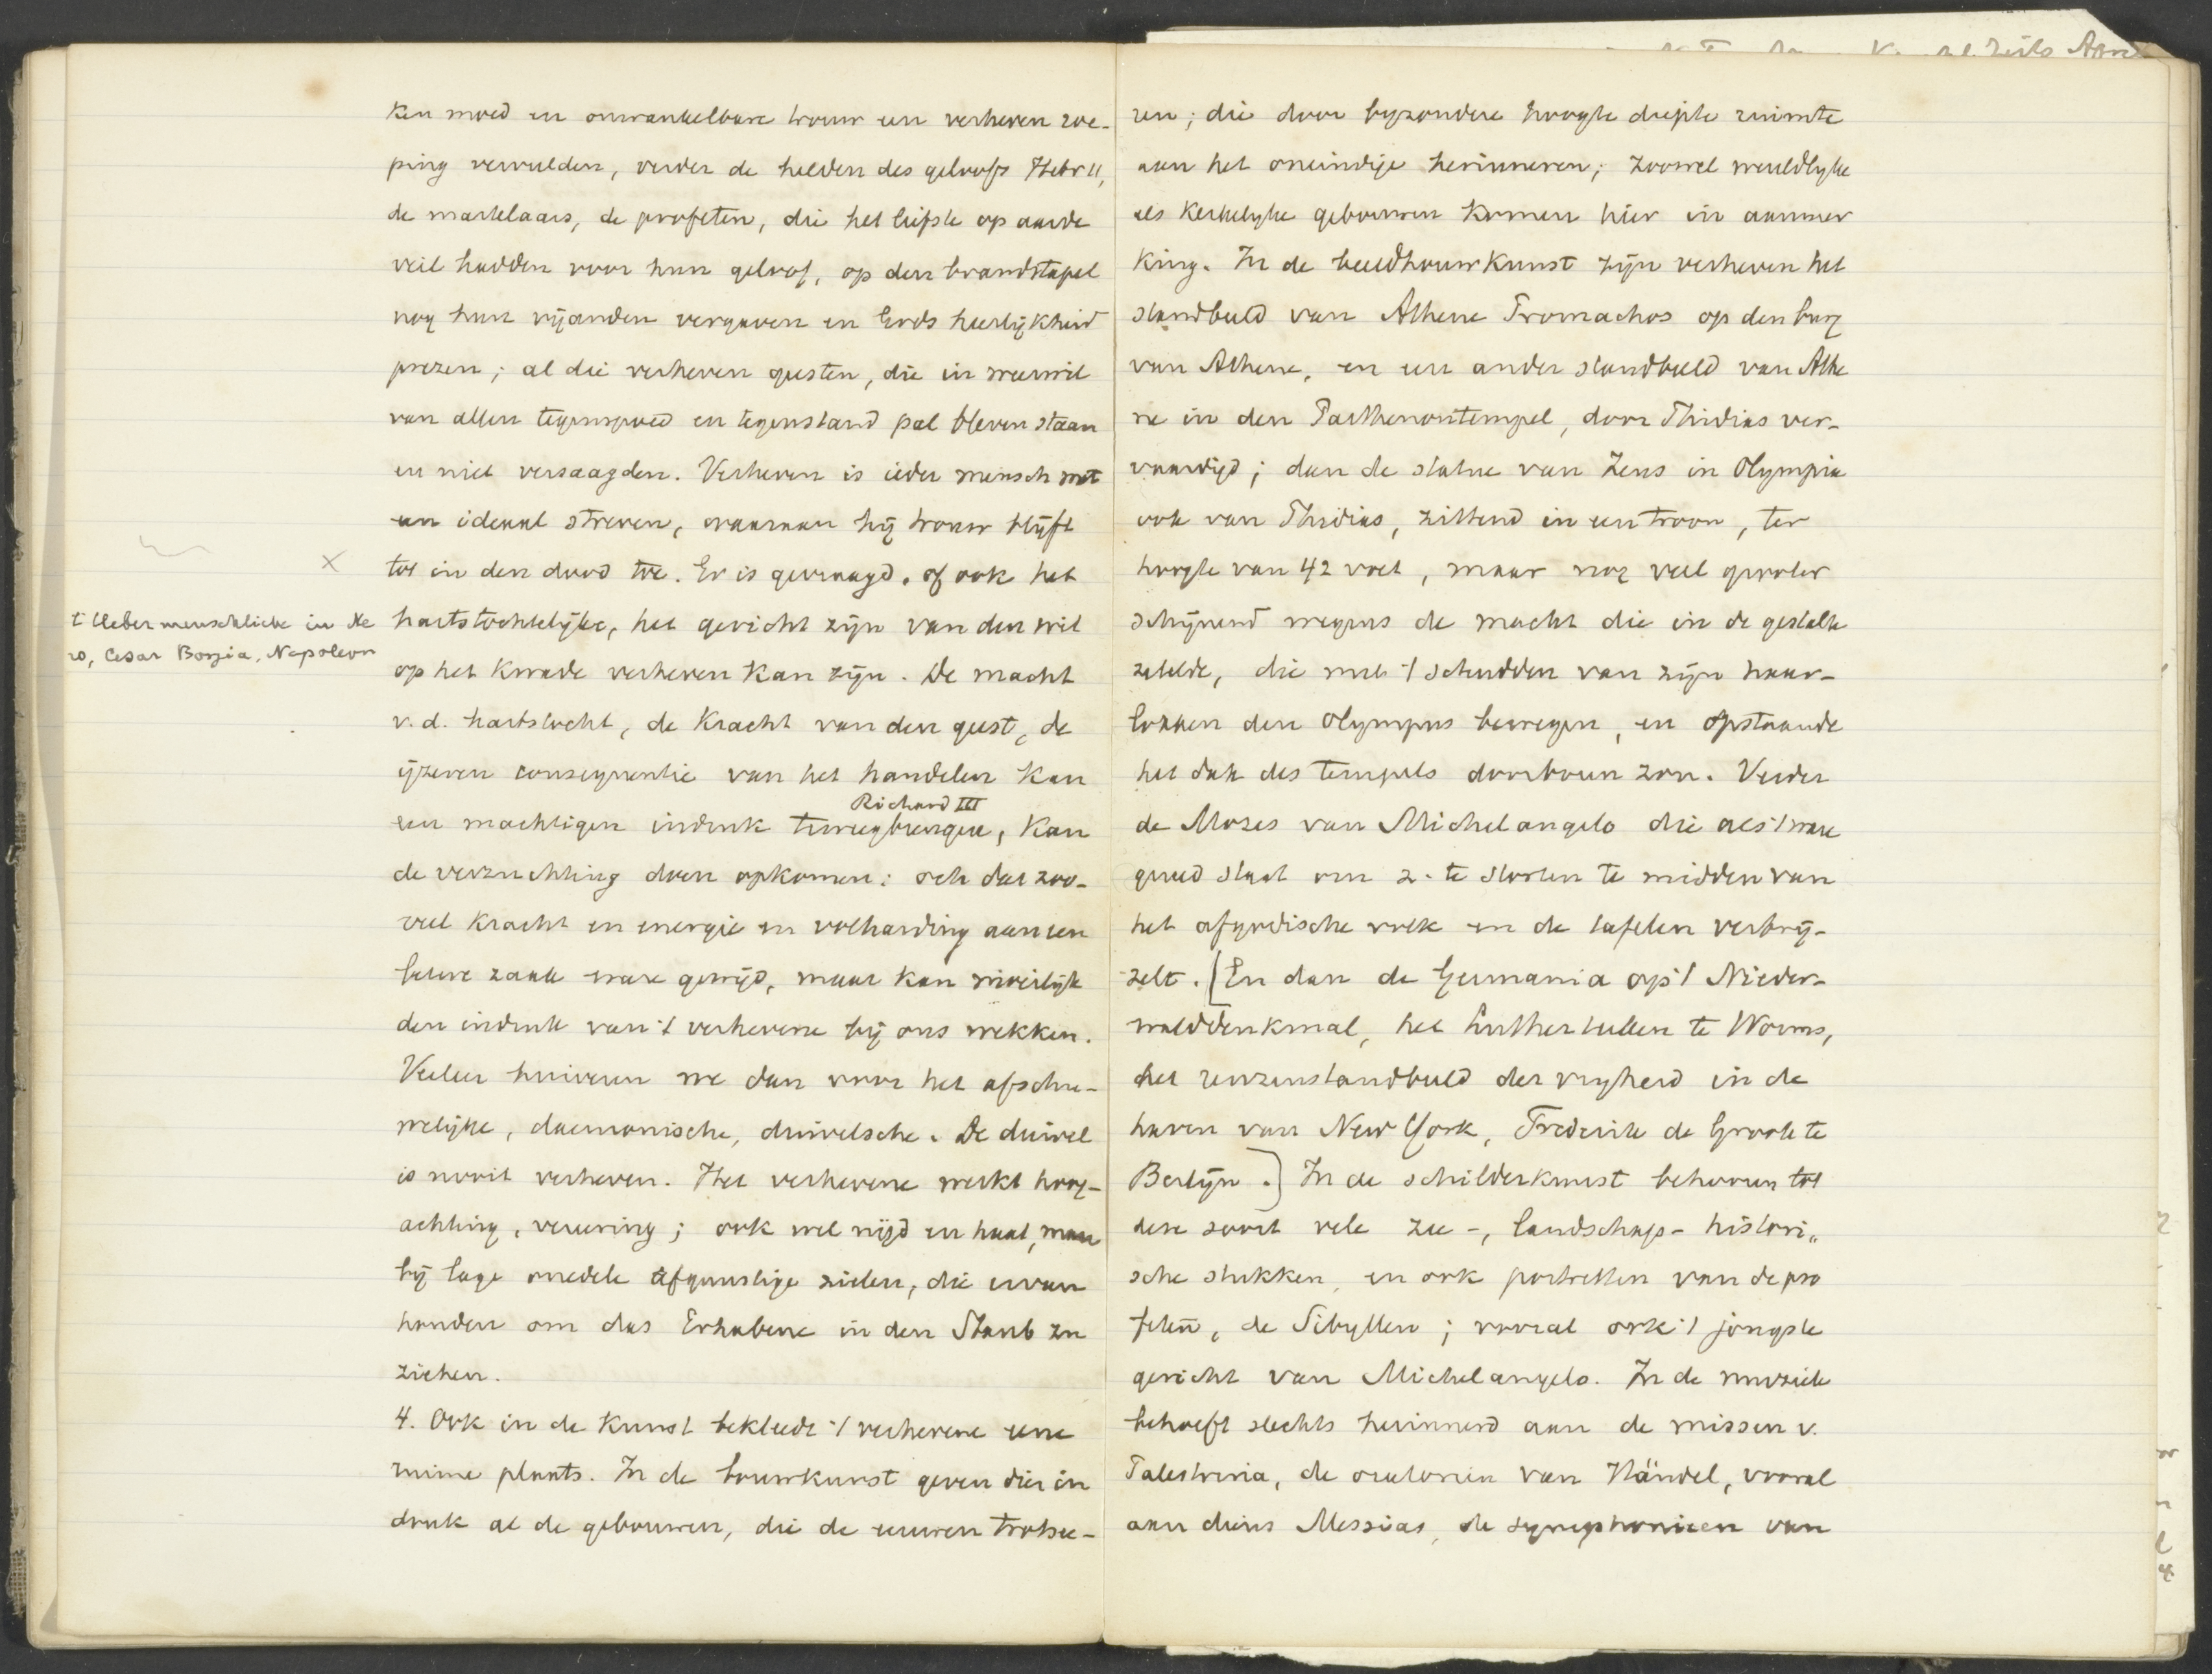 ken moed en onwankelbare trouw een verheven roe-
ping vervulden, verder de helden des geloofs Hebr 11,
de martelaars, de profeten, die het liefste op aarde
veil hadden voor hun geloof, op den brandstapel
nog hun vijanden vergaven en Gods heerlijkheid
prezen; al die verheven geesten, die in weerwil
van allen tegenspoed en tegenstand pal bleven staan
en niet versaagden. Verheven is ieder mensch met
een ideaal streven, waaraan hij trouw blijft
tot in den dood toe. Er is gevraagd, of ook het
't Uebermenschliche in Ne
ro, Cesar Borgia, Napoleon
hartstochtelijke, het gericht zijn van den wil
op het kwade verheven kan zijn. De macht
v.d. hartstocht, de kracht van den geest, de
ijzeren consequentie van het handelen kan
Richard III
een machtigen indruk teweegbrengen, kan
de verzuchting doen opkomen: och dat zoo-
veel kracht en energie en volharding aan een
betere zaak ware gewijd, maar kan moeilijk
den indruk van 't verhevene bij ons wekken.
Veeleer huiveren we dan voor het afschu-
welijke, daemonische, duivelsche. De duivel
is nooit verheven. Het verhevene werkt hoog-
achting, vereering; ook wel nijd en haat, maar
bij lage onedele afgunstige zielen, die ervan
houden om das Erhabene in den Staub zu
ziehen.
4. Ook in de kunst bekleedt 't verhevene eene
ruime plaats. In de bouwkunst geven dien in
druk al de gebouwen, die de eeuwen trotsee-
ren; die door byzondere hoogte diepte ruimte
aan het oneindige herinneren; zoowel wereldlyke
als kerkelyke gebouwen komen hier in aanmer
king. In de beeldhouwkunst zijn verheven het
standbeeld van Athene Promachos op den burg
van Athene, en een ander standbeeld van Athe
ne in den Parthenontempel, door Phidias ver-
vaardigd; dan de statue van Zeus in Olympia
ook van Phidias, zittend in een troon, ter
hoogte van 42 voet, maar nog veel grooter
schijnend wegens de macht die in de gestalte
zetelde, die met 't schudden van zijn haar-
lokken den Olympus bewegen, en opstaande
het dak des tempels doorboren zou. Verder
de Mozes van Michelangelo die als 't ware
gereed staat om z. te storten te midden van
het afgodische volk en de tafelen verbrij-
zelt. [En dan de Germania op 't Nieder-
walddenkmal, het Lutherbeeld te Worms,
het reuzenstandbeeld der vryheid in de
haven van New York, Frederik de Groote te
Berlijn.] In de schilderkunst behooren tot
deze soort vele zee-, landschaps- histori„
sche stukken, en ook portretten van de pro
feten, de Sibyllen; vooral ook 't jongste
gericht van Michelangelo. In de muziek
behoeft slechts herinnerd aan de missen v.
Palestrina, de oratorien van Händel, vooral
aan diens Messias, de symphonieen van